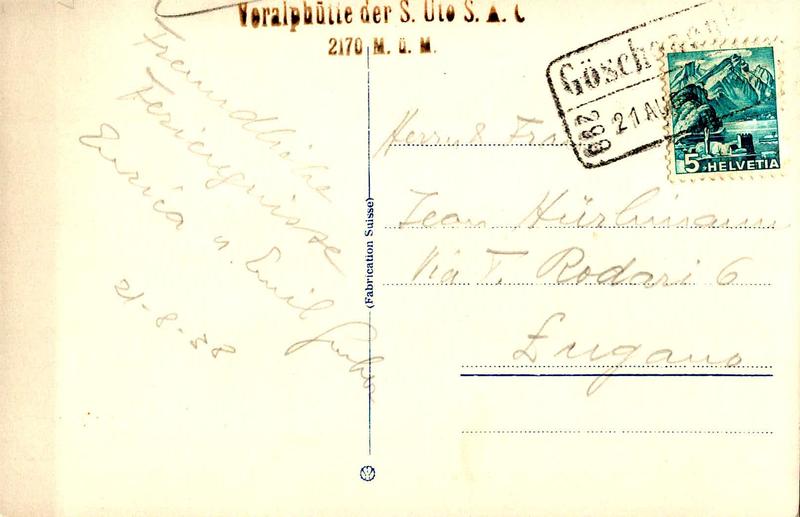 Voralphütte der S. Uto S. A. C
2170 M. ü. M.
Freundliche
Feriengrüsse
u. Emil
21-8-38
(Fabrication Suisse)
Göschenen
21 AU
5 HELVETIA
Herrn & Fr
Jean Hürlimann
Via F. Rodari 6
Lugano